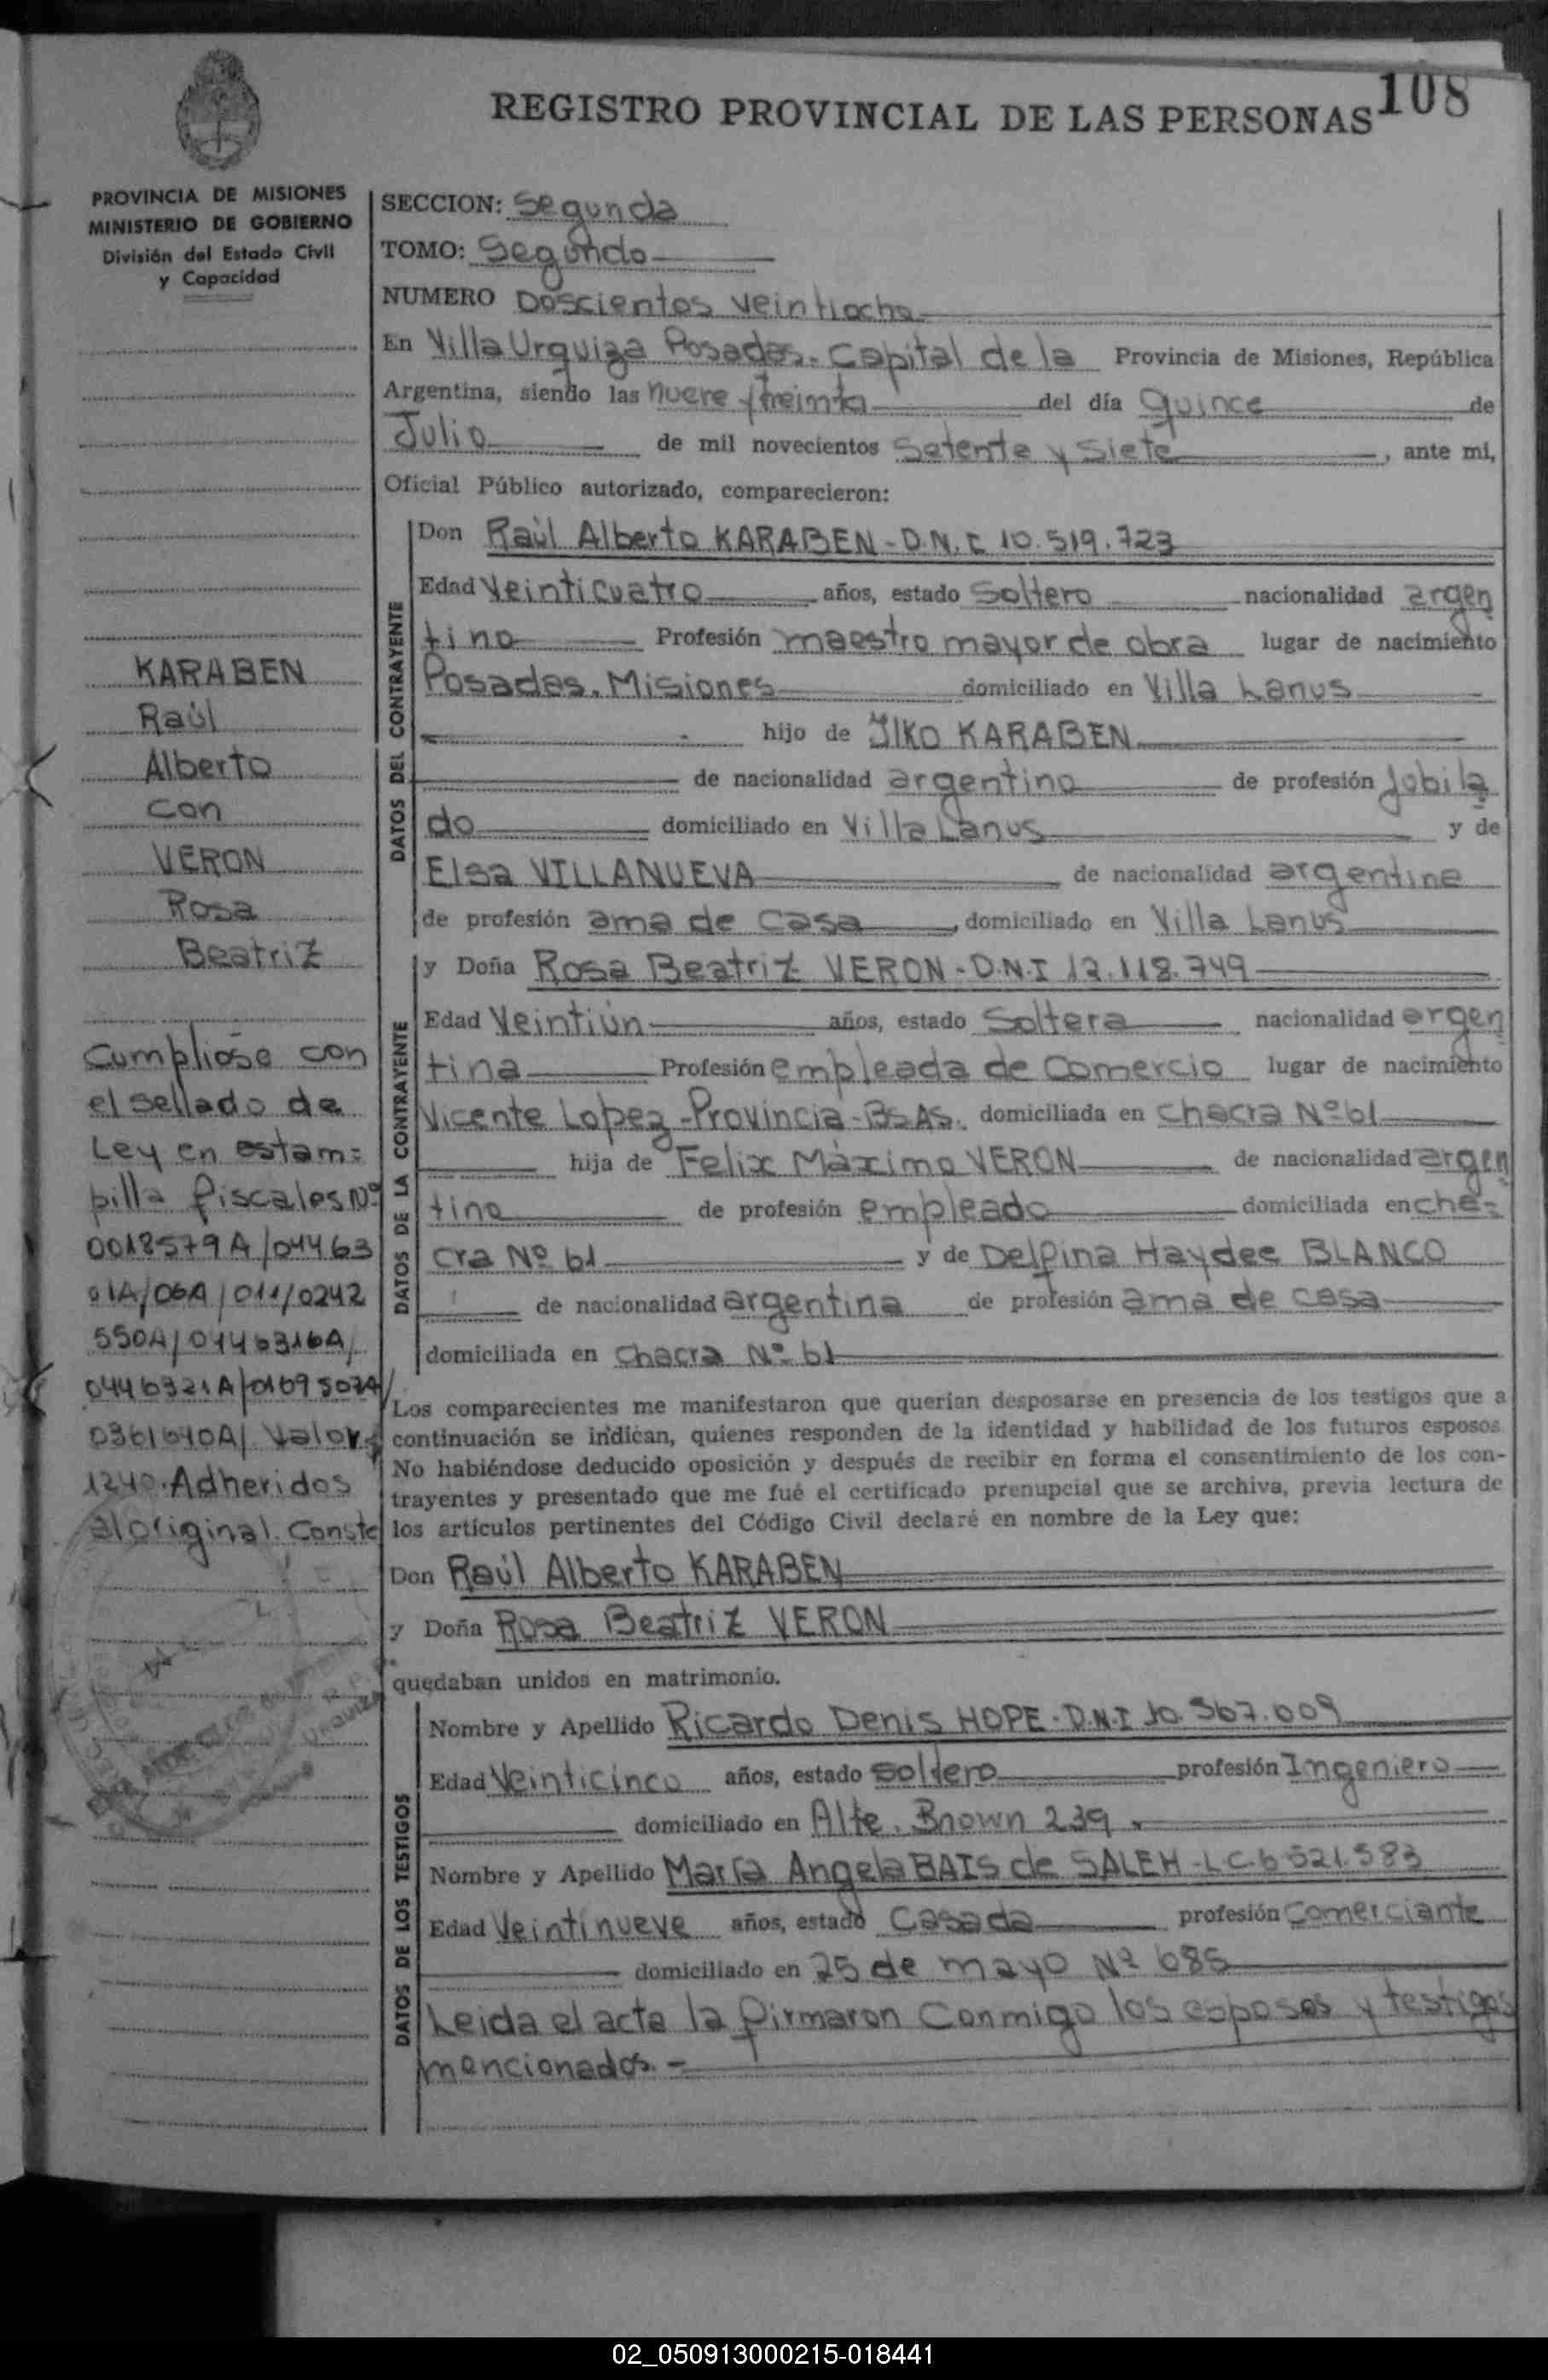 108
REGISTRO PROVINCIAL DE LAS PERSONAS
PROVINCIA DE MISIONES
MINISTERIO DE GOBIERNO
División del Estado Civil
y Capacidad
SECCION: Segunda
TOMO: Segundo
NUMERO Doscientos veintiocho
En Villa Urquiza Posadas. Capital de la Provincia de Misiones, República
Argentina, siendo las nueve y treinta del día quince de
Julio de mil novecientos Setenta y Siete, ante mi,
Oficial Público autorizado, comparecieron:
DATOS DEL CONTRAYENTE
Don Raúl Alberto KARABEN - D.N.I 10.519.723
Edad Veinticuatro años, estado Soltero nacionalidad argen
tino Profesión maestro mayor de obra lugar de nacimiento
Posadas. Misiones domiciliado en Villa Lanus
hijo de Ilko KARABEN
de nacionalidad argentino de profesión Jubila
do domiciliado en Villa Lanus y de
Elsa VILLANUEVA de nacionalidad argentina
de profesión ama de casa, domiciliado en Villa Lanus
DATOS DE LA CONTRAYENTE
y Doña Rosa Beatriz VERON - D.N.I 12.118.749
Edad Veintiún años, estado Soltera nacionalidad argen
tina Profesión empleada de Comercio lugar de nacimiento
Vicente Lopez - Provincia - Bs As. domiciliada en Chacra Nº 61
hija de Felix Máximo VERON de nacionalidad argen
tino de profesión empleado domiciliada en cha-
cra Nº 61 y de Delfina Haydee BLANCO
de nacionalidad argentina de profesión ama de casa
domiciliada en Chacra Nº 61
Los comparecientes me manifestaron que querían desposarse en presencia de los testigos que a
continuación se indican, quienes responden de la identidad y habilidad de los futuros esposos
No habiéndose deducido oposición y después de recibir en forma el consentimiento de los con-
trayentes y presentado que me fué el certificado prenupcial que se archiva, previa lectura de
los artículos pertinentes del Código Civil declaré en nombre de la Ley que:
Don Raúl Alberto KARABEN
y Doña Rosa Beatriz VERON
quedaban unidos en matrimonio.
DATOS DE LOS TESTIGOS
Nombre y Apellido Ricardo Denis HOPE - D.N.I 10.367.009
Edad Veinticinco años, estado soltero profesión Ingeniero
domiciliado en Alte. Brown 239
Nombre y Apellido María Angela BAIS de SALEH - L.C. 6 521.583
Edad Veintinueve años, estado Casada profesión Comerciante
domiciliado en 25 de mayo Nº 685
Leida el acta la firmaron Conmigo los esposos y testigos
mencionados. -
KARABEN
Raúl
Alberto
con
VERON
Rosa
Beatriz
Cumplióse con
el sellado de
Ley en estam=
pilla fiscales Nº
0018579A/04463
01A/06A/011/0242
550A/0446316A/
0446321A/0169507A/
0361640A/ Valor $
1240. Adheridos
al original. Conste
02_050913000215-018441